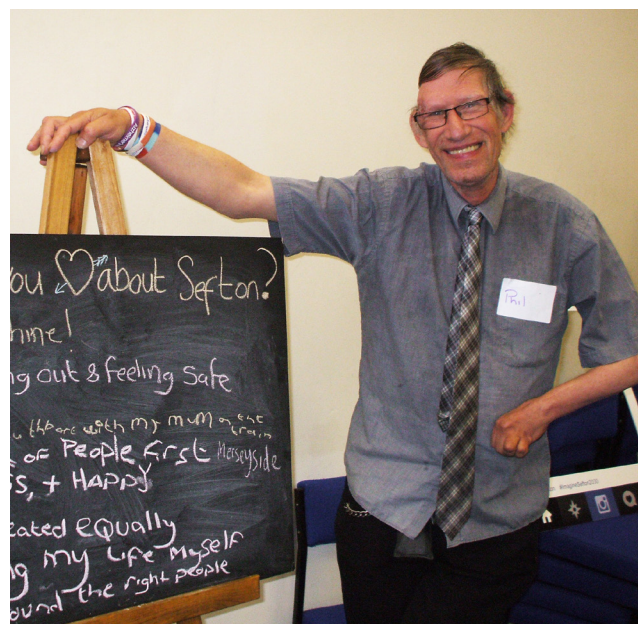 you about Sefton?
hine!
ng out & feeling safe
with my mum on the train
of People First Merseyside
ss, + Happy
eated equally
ng my Life Myself
ound the right people
Phil